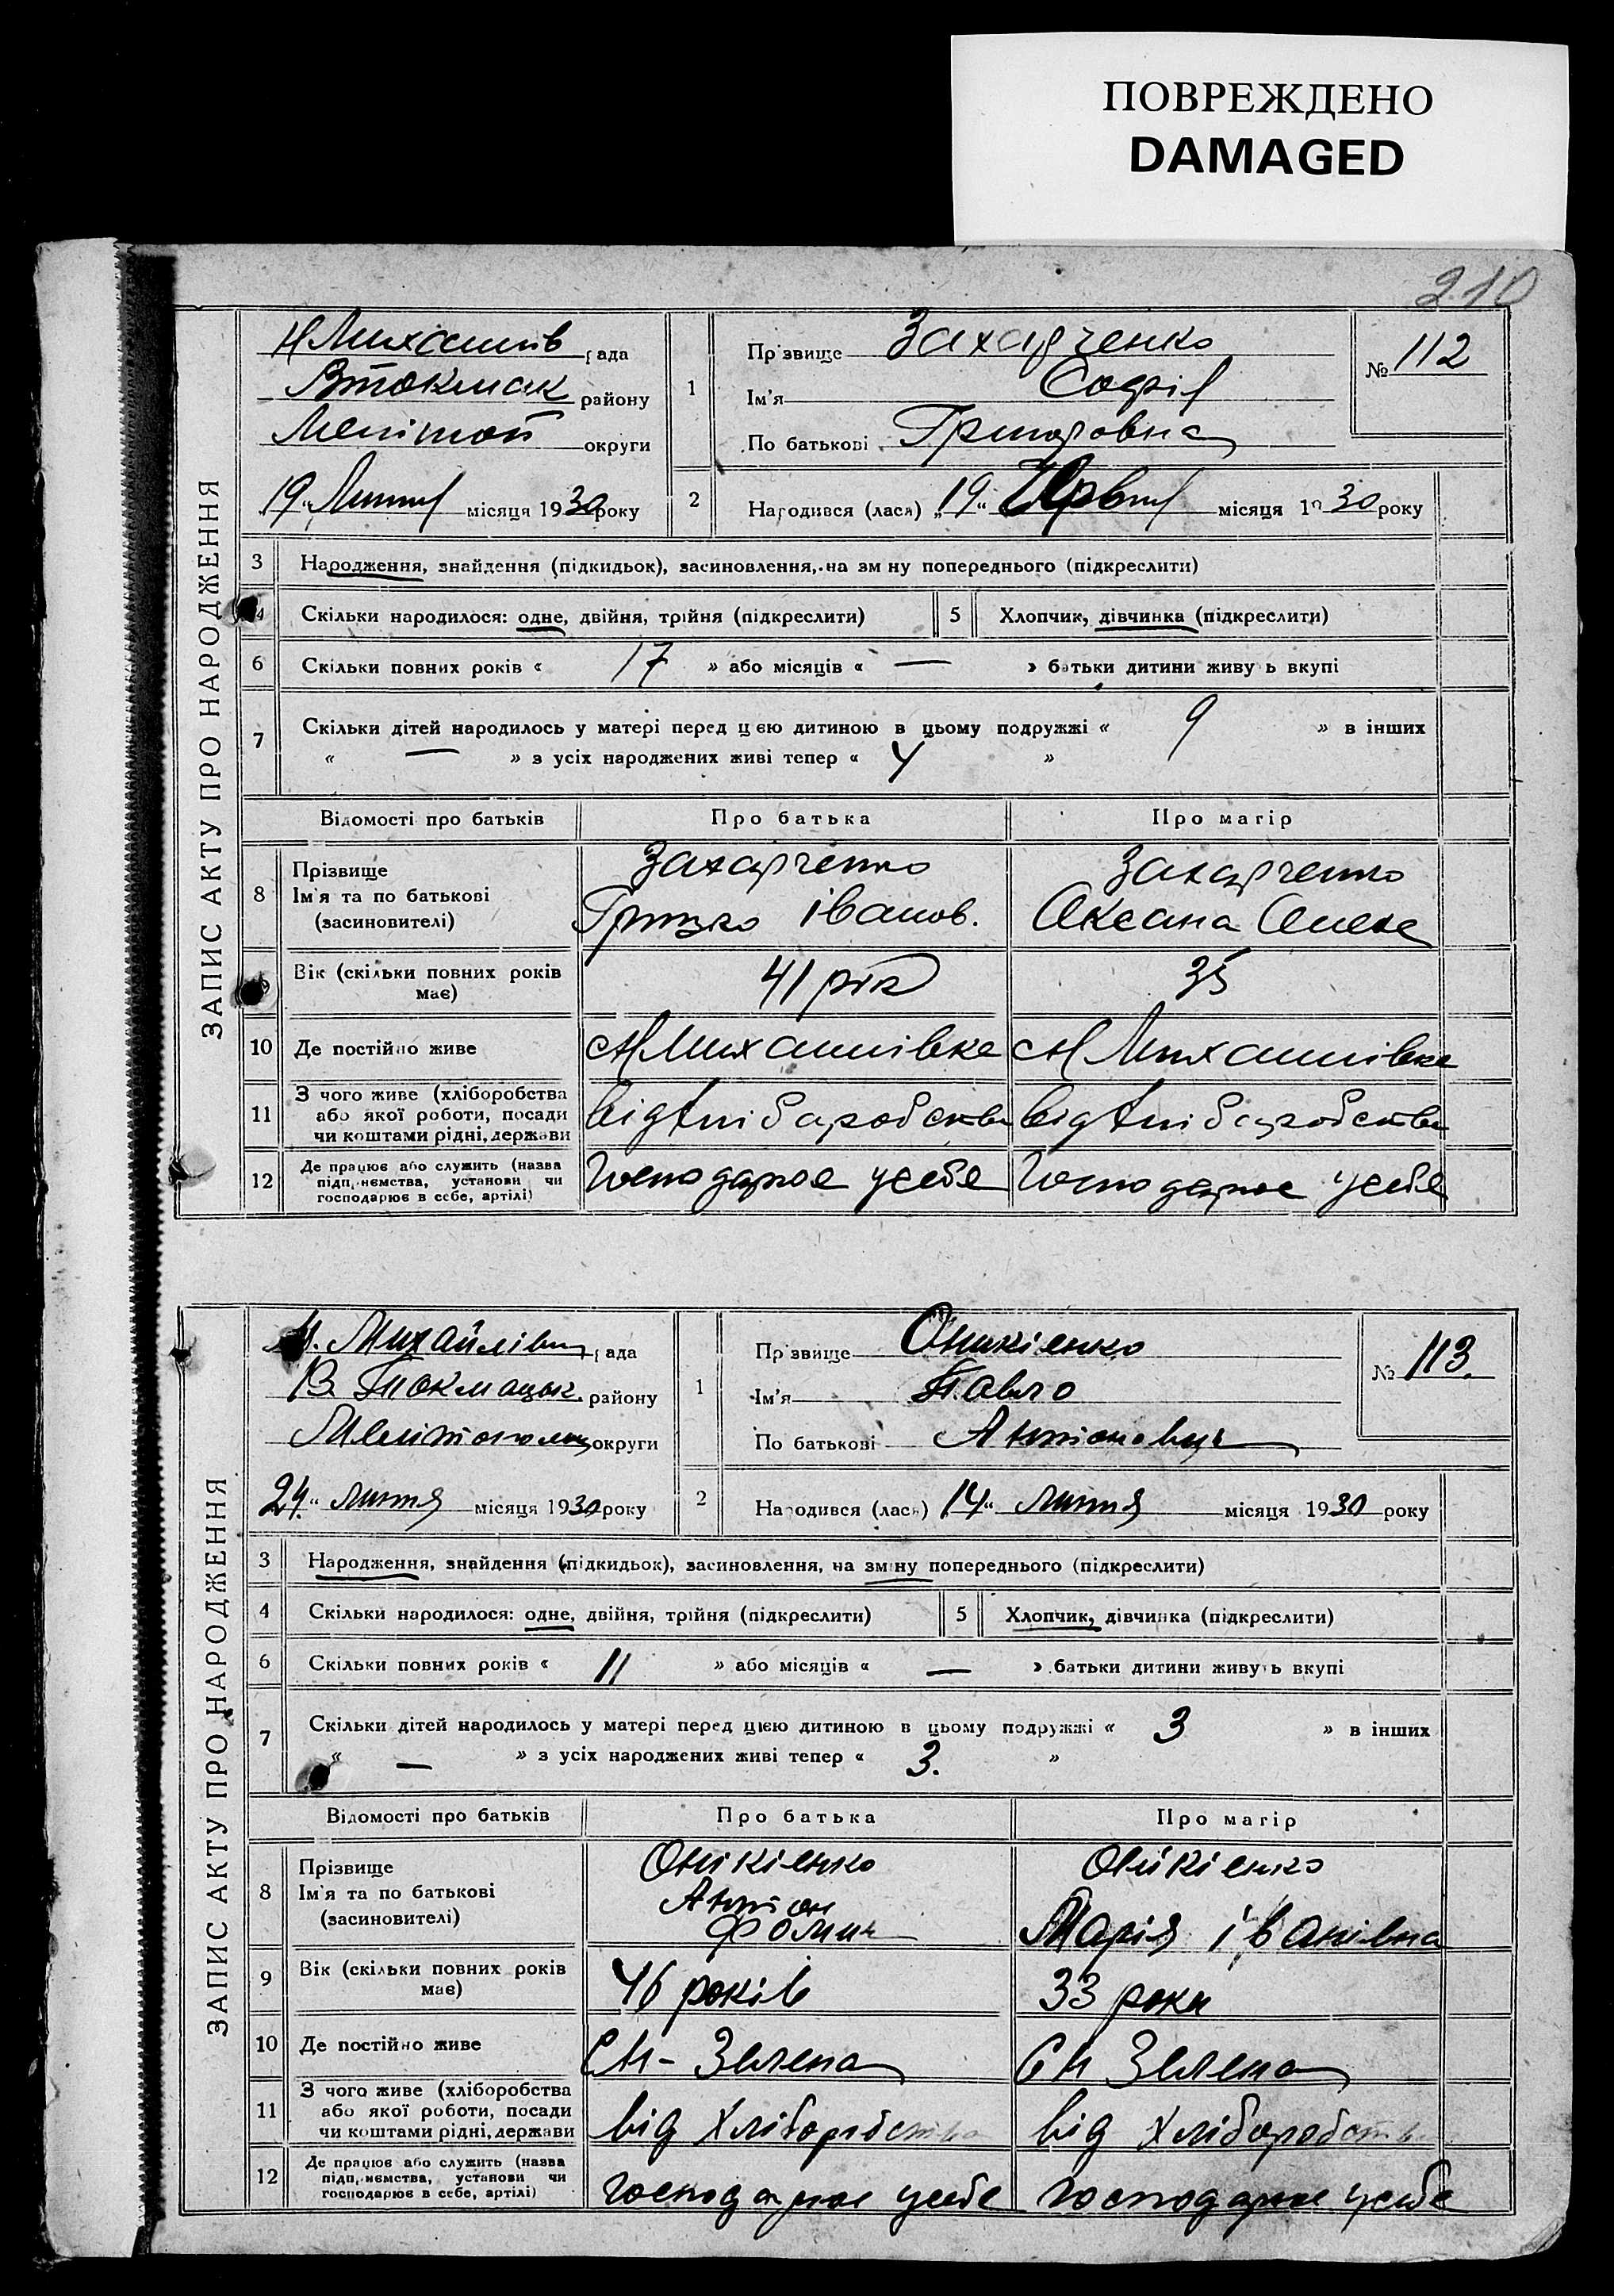 ПОВРЕЖДЕНО
DAMAGED
210
ЗАПИС АКТУ ПРО НАРОДЖЕННЯ
рада
Втокмак району
округи
19 місяця 1930 року
1
Прізвище Захарченко
Ім'я Софія
По батькові Григоровна
№ 112
2
Народився (лася) „19" місяця 1930 року
3 Народження, знайдення (підкидьок), засиновлення, на зміну попереднього (підкреслити)
4 Скільки народилося: одне, двійня, трійня (підкреслити) 5 Хлопчик, дівчинка (підкреслити)
6 Скільки повних років « 17 » або місяців « — » батьки дитини живуть вкупі
7 Скільки дітей народилось у матері перед цією дитиною в цьому подружжі « 9 » в інших
« — » з усіх народжених живі тепер « 4 »
Відомості про батьків Про батька Про матір
8 Прізвище
Ім'я та по батькові
(засиновителі)
Захарченко
Грицко Іванов.
Захарченко
Оксана
9 Вік (скільки повних років має)
41 рік
35
10 Де постійно живе
11 З чого живе (хліборобства
або якої роботи, посади
чи коштами рідні, держави
12 Де працює або служить (назва
підприємства, установи чи
господарює в себе, артілі)
господарює усебе
господарює усебе
ЗАПИС АКТУ ПРО НАРОДЖЕННЯ
Н. Михайлівки рада
В. Токмацьк. району
округи
24" лютня місяця 1930 року
1
Прізвище Оникіенко
Ім'я Павло
По батькові Антонович
№ 113.
2
Народився (лася) 14" лютня місяця 1930 року
3 Народження, знайдення (підкидьок), засиновлення, на зміну попереднього (підкреслити)
4 Скільки народилося: одне, двійня, трійня (підкреслити) 5 Хлопчик, дівчинка (підкреслити)
6 Скільки повних років « 11 » або місяців « — » батьки дитини живуть вкупі
7 Скільки дітей народилось у матері перед цією дитиною в цьому подружжі « 3 » в інших
« — » з усіх народжених живі тепер « 3. »
Відомості про батьків Про батька Про матір
8 Прізвище
Ім'я та по батькові
(засиновителі)
Оникіенко
Антон
Фомич
Оникіенко
Марія Іванівна
9 Вік (скільки повних років має)
46 років
33 роки
10 Де постійно живе
Зелена
Зелена
11 З чого живе (хліборобства
або якої роботи, посади
чи коштами рідні, держави
від хліборобства
від хліборобства
12 Де працює або служить (назва
підприємства, установи чи
господарює в себе, артілі)
господарює усебе
господарює усебе